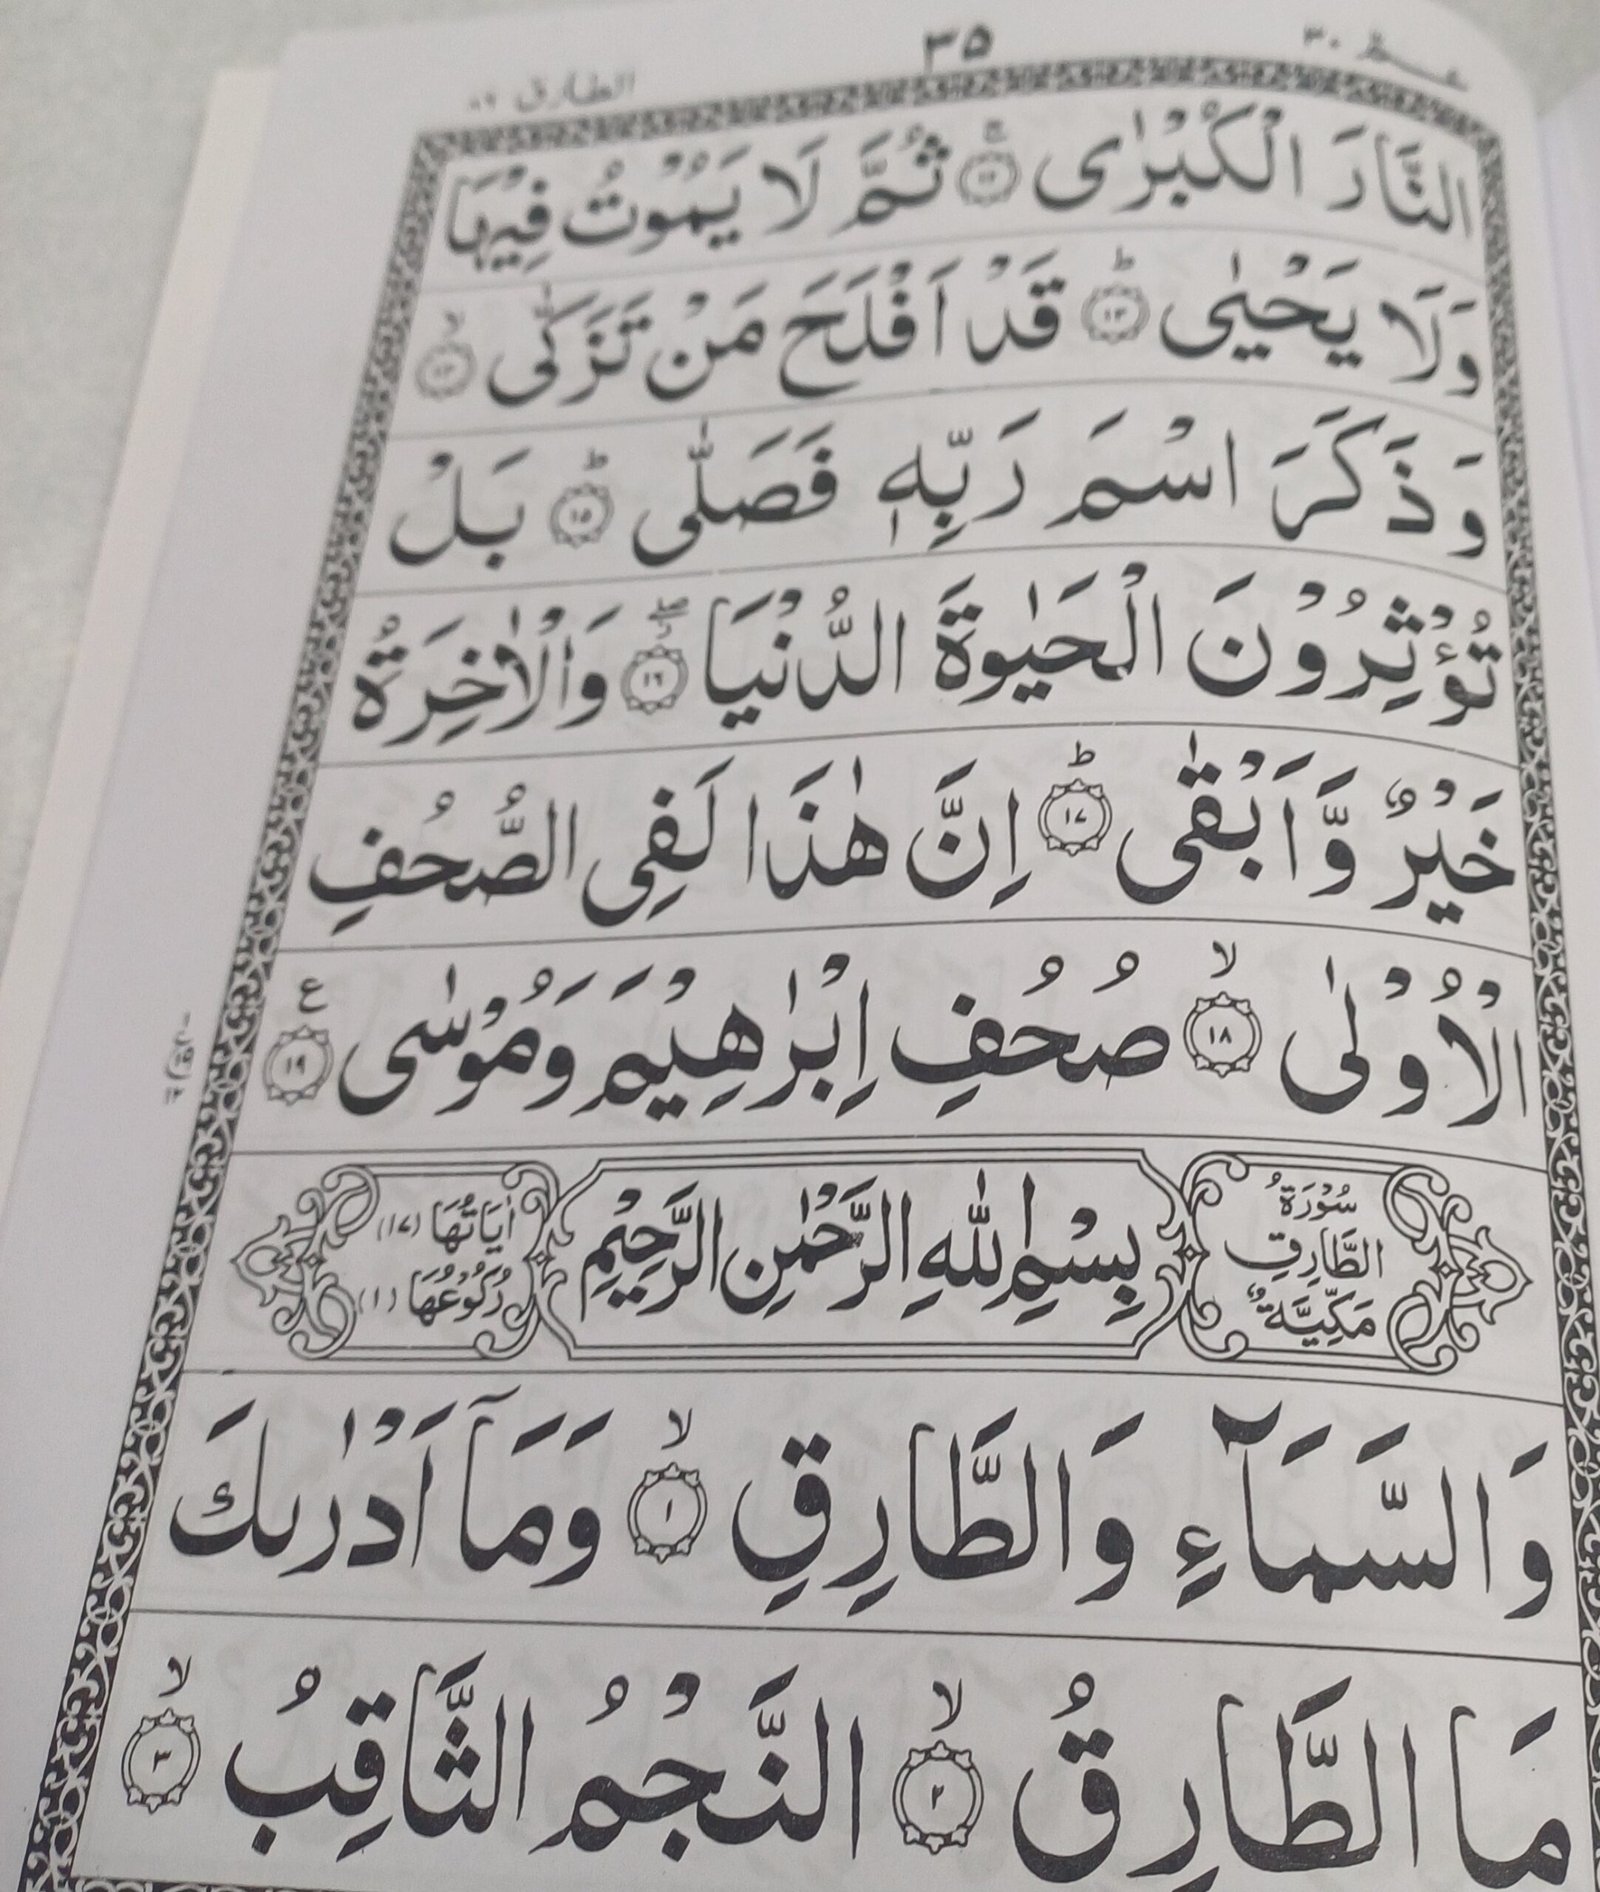 الطارق ٨٦
٣٥
عـــم ٣٠
النَّارَ الْكُبْرٰى ۚ ﴿١٢﴾ ثُمَّ لَا يَمُوْتُ فِيْهَا
وَلَا يَحْيٰى ؕ ﴿١٣﴾ قَدْ اَفْلَحَ مَنْ تَزَكّٰى ۙ ﴿١٤﴾
وَذَكَرَ اسْمَ رَبِّهٖ فَصَلّٰى ؕ ﴿١٥﴾ بَلْ
تُؤْثِرُوْنَ الْحَيٰوةَ الدُّنْيَا ۖ ﴿١٦﴾ وَالْاٰخِرَةُ
خَيْرٌ وَّاَبْقٰى ؕ ﴿١٧﴾ اِنَّ هٰذَا لَفِى الصُّحُفِ
الْاُوْلٰى ۙ ﴿١٨﴾ صُحُفِ اِبْرٰهِيْمَ وَمُوْسٰى ع ﴿١٩﴾
سُوْرَةُ الطَّارِقِ مَكِّيَّةٌ
بِسْمِ اللّٰهِ الرَّحْمٰنِ الرَّحِيْمِ
اٰيَاتُهَا (١٧) رُكُوْعُهَا (١)
وَالسَّمَآءِ وَالطَّارِقِ ۙ ﴿١﴾ وَمَآ اَدْرٰىكَ
مَا الطَّارِقُ ۙ ﴿٢﴾ النَّجْمُ الثَّاقِبُ ۙ ﴿٣﴾